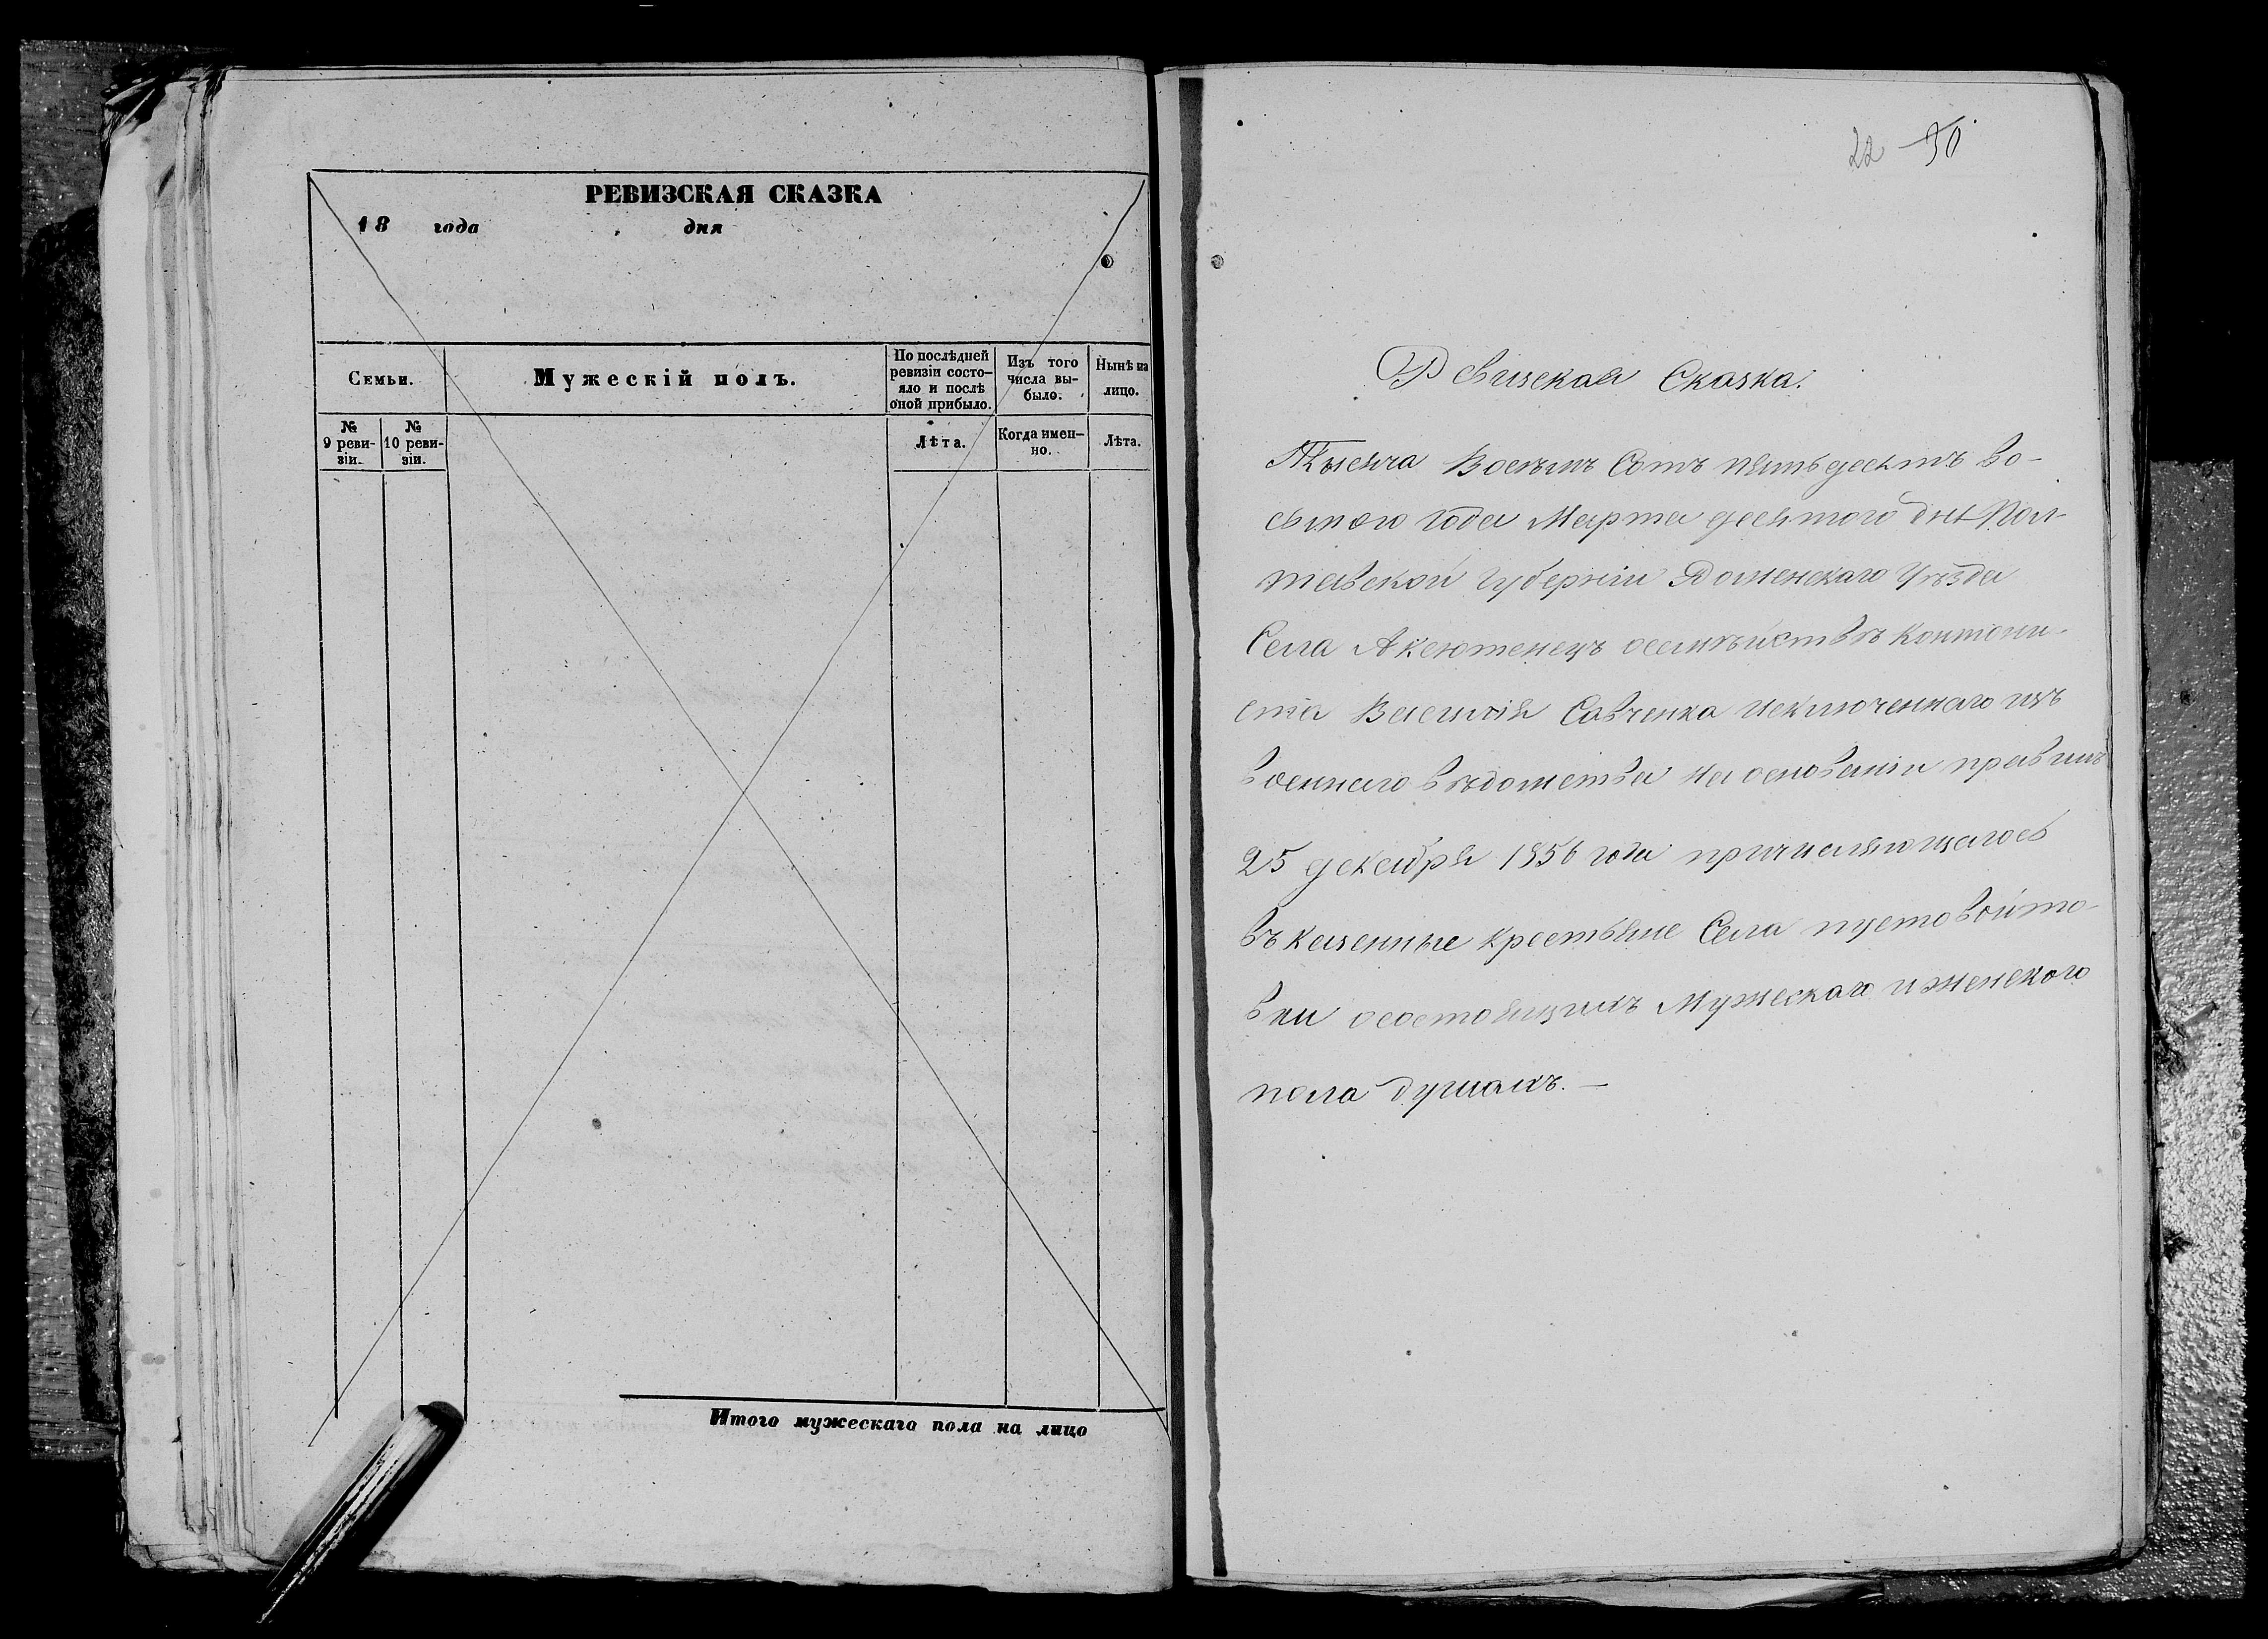 РЕВИЗСКАЯ СКАЗКА
18 года дня
Семьи.
Мужескій полъ.
По послѣдней
ревизіи состо-
яло и послѣ
оной прибыло.
Изъ того
числа вы-
было.
Нынѣ на
лицо.
№
9 реви-
зіи.
№
10 реви-
зіи.
Лѣта.
Когда имен-
но.
Лѣта.
Итого мужескаго пола на лицо
22 30
Ревизская Сказка.
Тысяча Восемь Сотъ пятьдесятъ во-
сьмого года Марта десятого дня Пол-
тавской Губерніи Роменскаго Уѣзда
Села осемѣйствѣ Контони-
ста Василія Савченка исключеннаго изъ
военнаго вѣдомства на основаніи правилъ
25 декабря 1856 года причисляющагось
въ казенные крестьяне Села пустовойто-
вки осостоящихъ Мужескаго и женского
пола душахъ. —